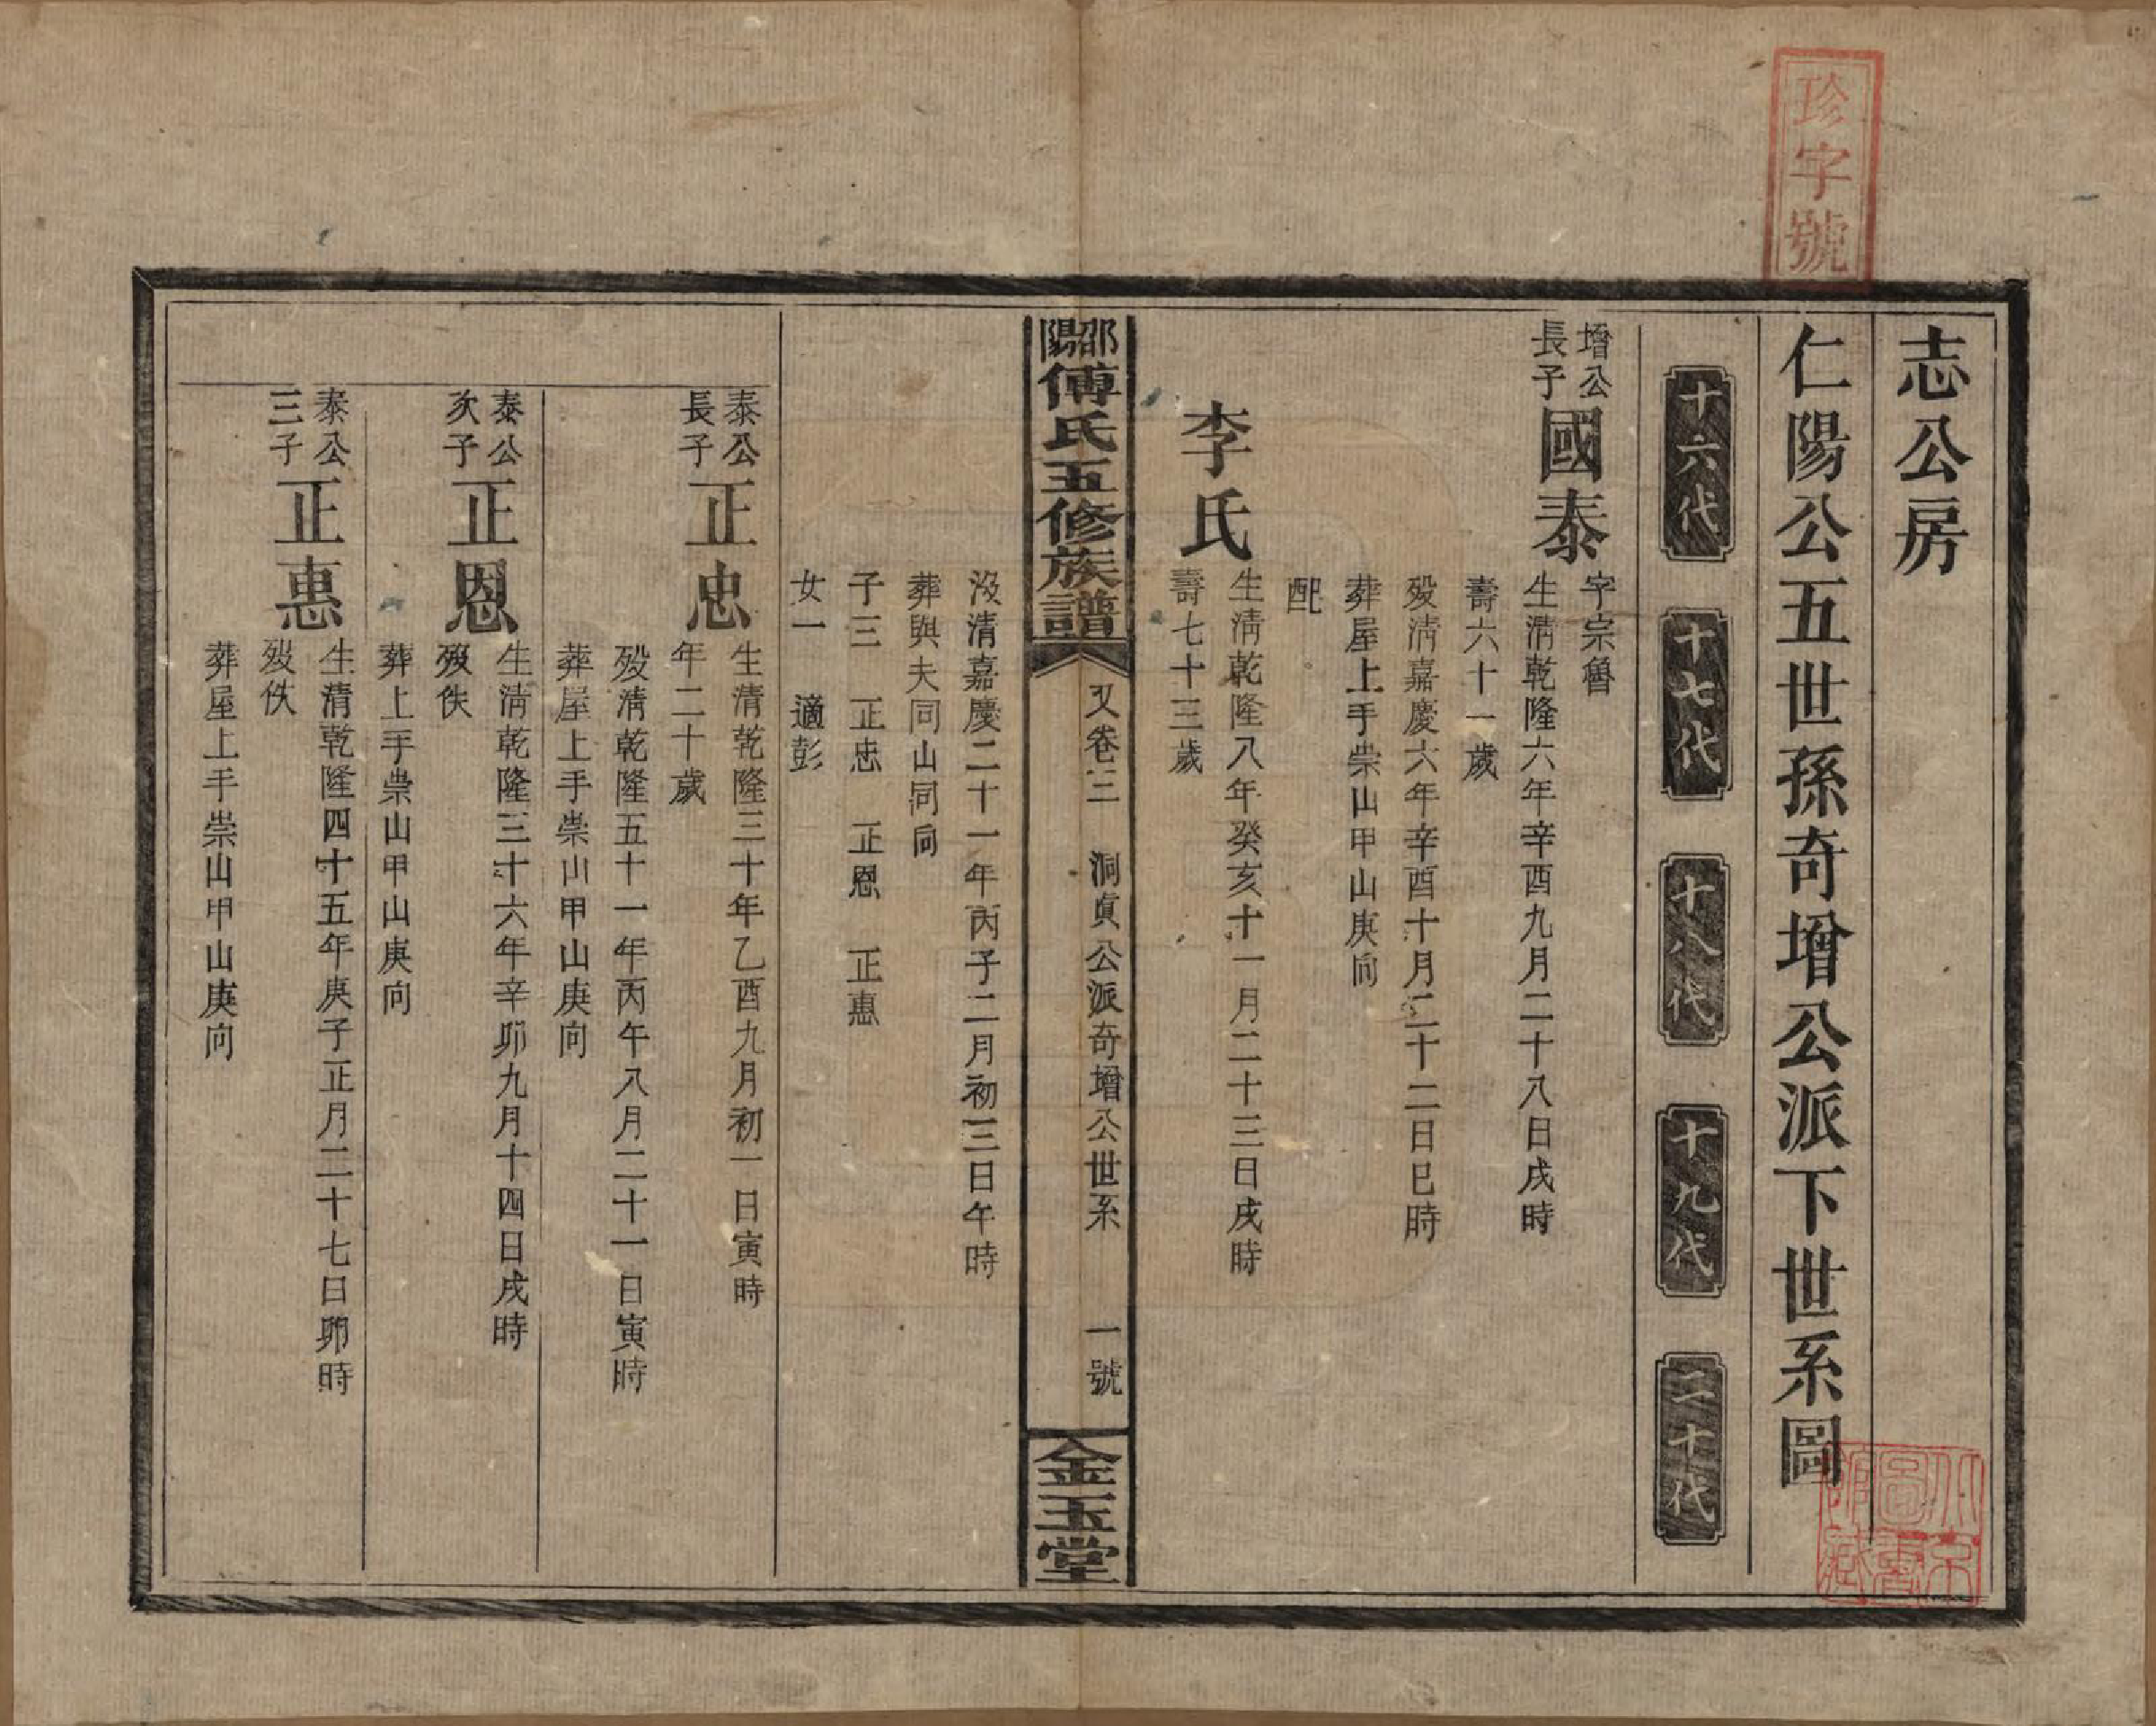 珍字號
志公房
仁陽公五世孫奇增公派下世系圖
十六代
十七代
十八代
十九代
二十代
增公
長子
國泰
字宗魯
生清乾隆六年辛酉九月二十八日戌時
壽六十一歲
歿清嘉慶六年辛酉十月二十二日巳時
葬屋上手崇山甲山庚向
配
李氏
生清乾隆八年癸亥十一月二十三日戌時
壽七十三歲
邵陽傅氏五修族譜
又卷三 洞真公派奇增公世系 一號
金玉堂
沒清嘉慶二十一年丙子二月初三日午時
葬與夫同山同向
子三 正忠 正恩 正惠
女一 適彭
泰公
長子
正忠
生清乾隆三十年乙酉九月初一日寅時
年二十歲
歿清乾隆五十一年丙午八月二十一日寅時
葬屋上手崇山甲山庚向
泰公
次子
正恩
生清乾隆三十六年辛卯九月十四日戌時
歿佚
葬上手崇山甲山庚向
泰公
三子
正惠
生清乾隆四十五年庚子正月二十七日卯時
歿佚
葬屋上手崇山甲山庚向
北京
圖書
館藏